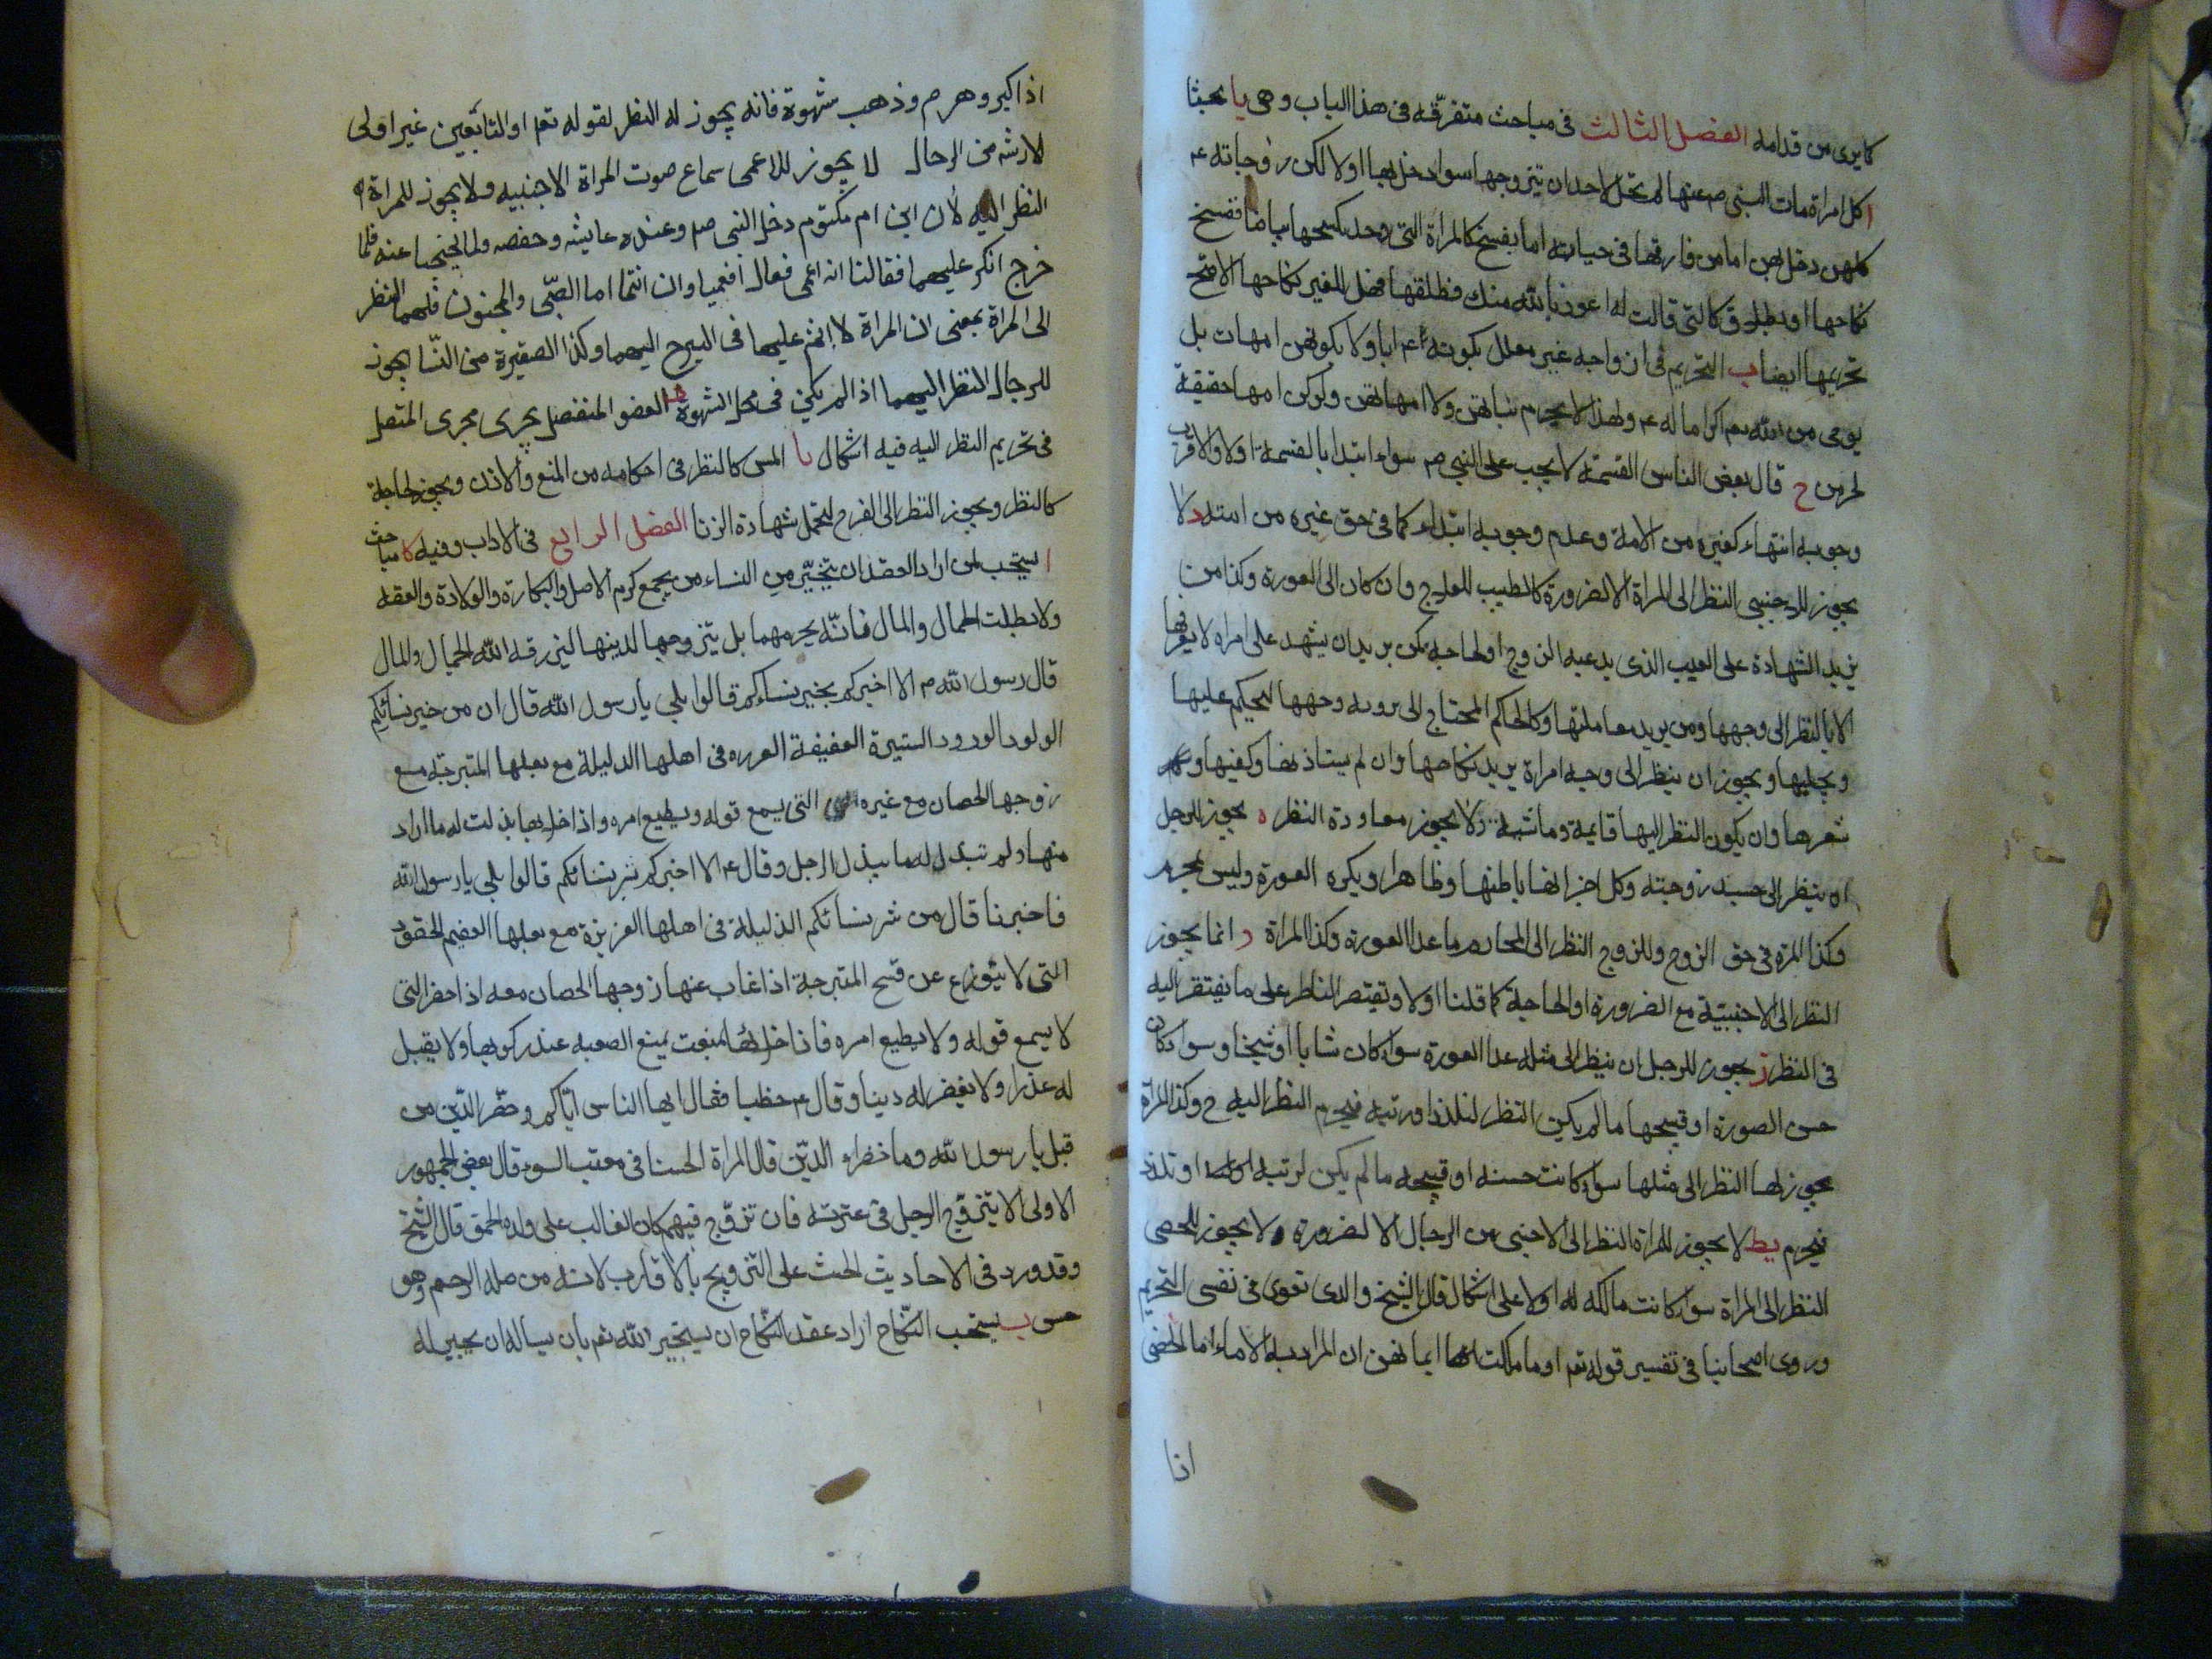 كما يرى من قدامه الفصل الثالث فى مباحث متفرّقه فى هذا الباب وهى يا بحثا
ا كل امراة مات النبى ص عنها لم تحل لاحد ان يتزوجها سواء دخل بها اولا لكن زوجاته ع
كلهن دخل بهن اما من فارقها فى حياته اما بفسخ كالمراة التى وجد بكشحها بياضا ففسخ
نكاحها او بطلاق كالتى قالت له اعوذ بالله منك فطلقها فهل للغير نكاحها الاصح
تحريمها ايضا ب التحريم فى ازواجه غير معلل بكونه ع ابا ولا بكونهن امهات بل
من الله تعم اكراما له ع ولهذا لا يحرم بناتهن ولا امهاتهن ولو كن امها حقيقة
لحرمن ج قال بعض الناس القسمة لا يجب على النبى ص سواء ابتدا بالقسمة اولا والاقرب
وجوبه انتهاء كغيره من الامة وعدم وجوبه ابتداء كما فى حق غيره من امته د لا
يجوز للاجنبى النظر الى المراة الا لضرورة كالطبيب للعلاج وان كان الى العورة وكذا من
يريد الشهادة على العيب الذى يدعيه الزوج او لحاجه كمن يريد ان يشهد على امراه لا يعرفها
الا بالنظر الى وجهها ومن يريد معاملتها وكالحاكم المحتاج الى رويه وجهها ليحكم عليها
ويحليها ويجوز ان ينظر الى وجه امراة يريد نكاحها وان لم يستاذنها وكفيها و
شعرها وان يكون النظر اليها قايمة وماشية ولا يجوز معاودة النظر ه يجوز للرجل
ان ينظر الى جسد زوجته وكل اجزائها باطنها وظاهرا ويكره العورة وليس بمحرم
وكذا المرة فى حق الزوج وللزوج النظر الى المحارم ما عدا العورة وكذا المراة و انما يجوز
النظر الى الاجنبيّة مع الضرورة او الحاجة كما قلنا اولا ويقتصر الناظر على ما يفتقر اليه
فى النظر ز يجوز للرجل ان ينظر الى مثله عدا العورة سواء كان شابا او شيخا وسواء كان
حسن الصورة او قبيحها ما لم يكن النظر لتلذذ او ريبه فيحرم النظر اليه ح وكذا المراة
يجوز لها النظر الى مثلها سواء كانت حسنه او قبيحه ما لم يكن لريبه او تلذذ
فيحرم يط لا يجوز للمراة النظر الى الاجنبى من الرجال الا لضرورة ولا يجوز للخصى
النظر الى المراة سواء كانت مالكه له اولا على اشكال قال الشيخ والذى تقوى فى نفسى التحريم
وروى اصحابنا فى تفسير قوله تعم او ما ملكت ايمانهن ان المراد به الاماء اما الخصى
اذا
اذا كبر وهرم وذهب شهوة فانه يجوز له النظر لقوله تعم او التابعين غير اولى
الاربه من الرجال لا يجوز للاعمى سماع صوت المراة الاجنبيه ولا يجوز للمراة
النظر اليه لان ابن ام مكتوم دخل النبى ص وعنده عايشه وحفصه ولم تحتجبا عنه فلما
خرج انكر عليهما فقالتا انه اعمى فقال افعمياوان انتما اما الصّبى والمجنون فلهما النظر
الى المراة بمعنى ان المراة لا اثم عليها فى التبرج اليهما وكذا الصغيرة من النّسا يجوز
للرجال النظر اليهما اذا لم يكن فى محل الشهوة العضو المنفصل يجرى مجرى المتصل
فى تحريم النظر اليه فيه اشكال يا المس كالنظر فى احكامه من المنع والاذن ويجوز لحاجة
كالنظر ويجوز النظر الى الفرج لتحمل شهادة الزنا الفصل الرابع فى الاداب وفيه كا مباحث
ا يستحب لمن اراد العقد ان يتخيّر من النساء من يجمع كرم الاصل والبكارة والولادة والعفه
ولا يطلب الجمال والمال فانّه يحرمهما بل يتزوجها لدينها ليرزقه الله الجمال والمال
قال رسول الله ص الا اخبركم بخير نساءكم قالوا بلى يا رسول الله قال ان من خير نسائكم
الولود الودود الستيرة العفيفة العزيزه فى اهلها الذليلة مع بعلها المتبرجه مع
زوجها الحصان مع غيره التى يسمع قوله ويطيع امره واذا خلا بها بذلت له ما اراد
منها ولم تبذل له ما يبذل الرجل وقال ع الا اخبركم بشر نسائكم قالوا بلى يا رسول الله
فاخبرنا قال من شر نسائكم الذليلة فى اهلها العزيزة مع بعلها العقيم الحقود
التى لا يتورع عن قبيح المتبرجة اذا غاب عنها زوجها الحصان معه اذا حضر التى
لا يسمع قوله ولا يطيع امره فاذا خلا بها تمنعت تمنع الصعبه عند ركوبها ولا يقبل
له عذرا ولا يغفر له ذنبا وقال ع خطبا فقال ايها الناس ايّاكم وخضر الدّمن
قيل يا رسول الله وما خضراء الدمن قال المراة الحسنا فى منبت السوء قال بعض الجمهور
الاولى الا يتزوّج الرجل فى عترته فان تزوّج فيهم كان الغالب على ولده الحمق قال الشيخ
وقد ورد فى الاحاديث الحث على التّزويج بالاقارب لانه من صله الرحم وهو
حسن ب يستحب النّكاح اراد عقد النّكاح ان يستخير الله تعم بان يساله ان يخير له